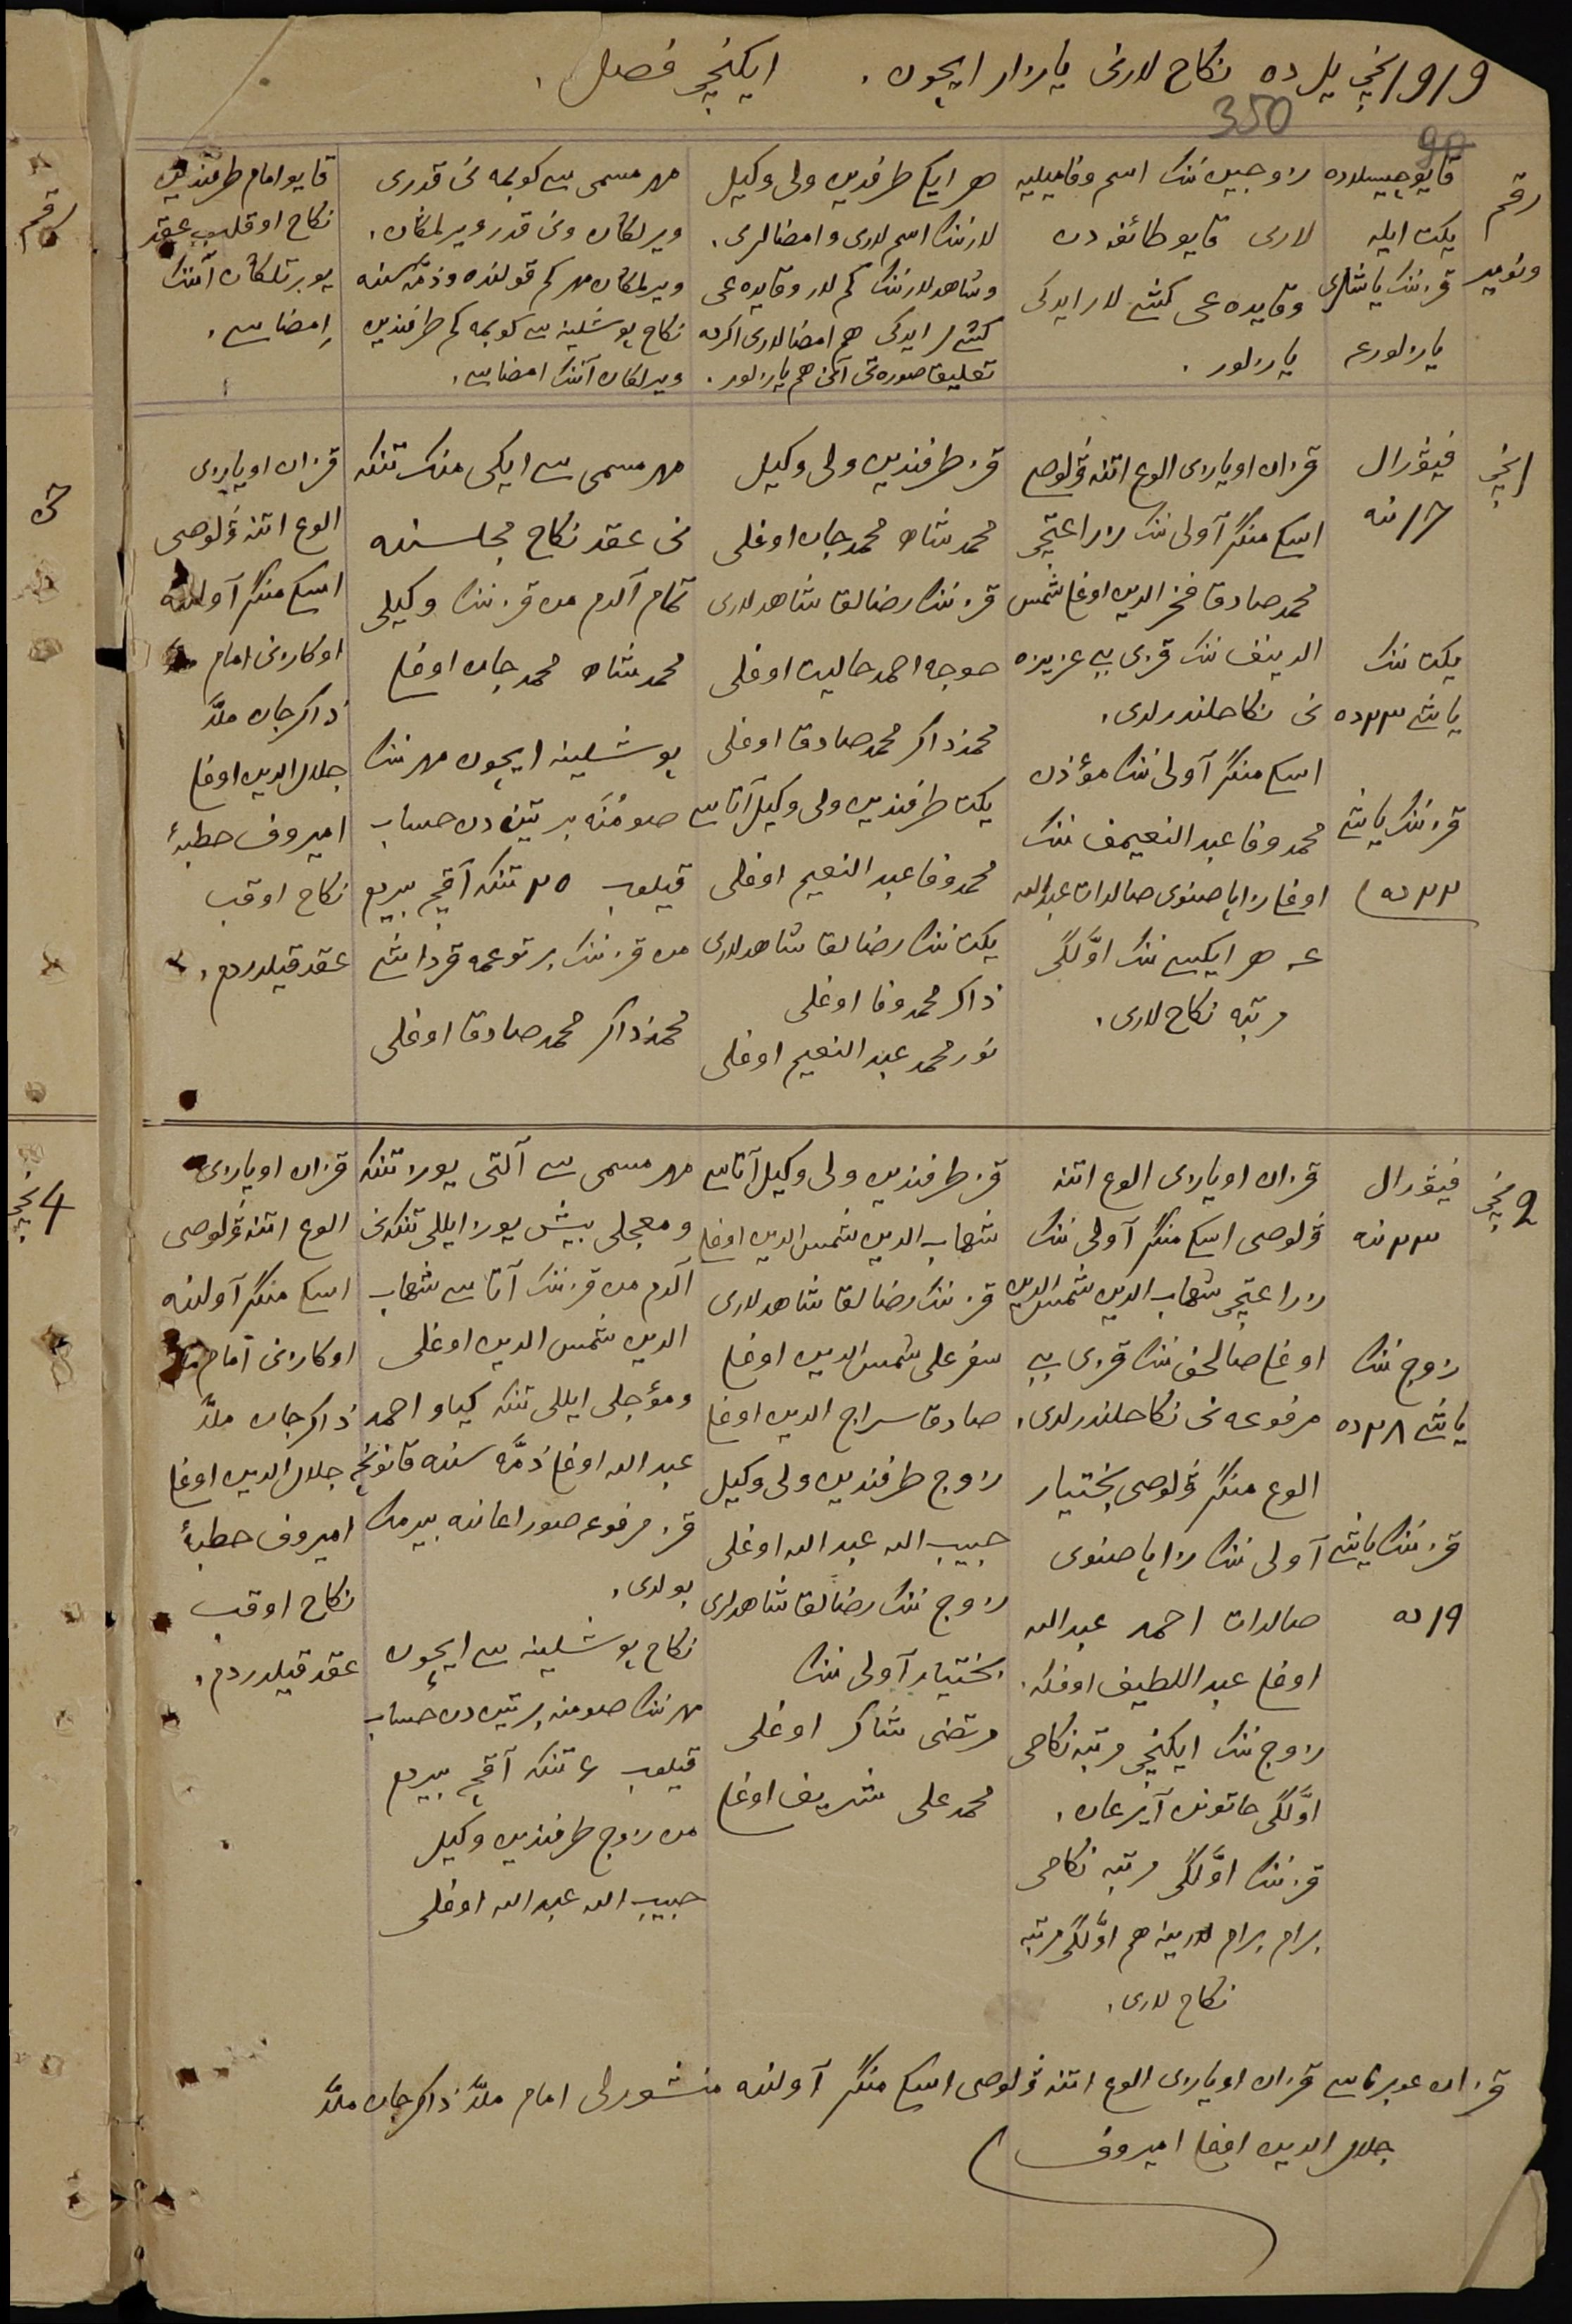 1919نچی یل ده نکاح لارنی یازار ایچون. ایکنچی فصل.
350
90
رقم
ونومیر
قایو چیسلاده
یکت ایله
قزننک یاشلری
یازلور
زوجین ننک اسم وفامیلیه
لاری قایو طائفه دن
وقایده غی کشی لار ایدکی
یازلور.
هر ایکی طرفدین ولی وکیل
لارننک اسم لاری وامضالری.
وشاهد لارننک کم لار وقایده غی
کشی لر ایدکی هم امضالاری اکرده
تعلیق صورتی آنی هم یازلور.
مهر مسمی سی کوبمه نی قدری
ویرلکان ونی قدر ویرلمکان.
ویرلمکان مهر کم قولنده وذمّه سنده
نکاح پوشلینه سی کوبمه کم طرفندین
ویرلکان آننک امضاسی.
قایو امام طرفندین
نکاح اوقلیب عقد
یورتلکان آننک
إمضاسی.
رقم
1نچی
فیۋرال
17 نده
یکت ننک
یاشی 23 ده
قزننک یاشی
22 ده
قزان اویازی الوغ اتنه ۋلوصی
اسکی منکر آولی ننک زراعتچی
محمد صادق فخر الدین اوغلی شمس
الدینف ننک قزی بی بی عزیزه
نی نکاحلندرلدی.
اسکی منکر آولی ننک مؤذن
محمد وفا عبد النعیمف ننک
اوغلی زاپاصنوی صالدات عبدالله
غه هر ایکیسی ننک اوّلگی
مرتبه نکاح لاری.
قز طرفندین ولی وکیل
محمد شاه محمد جان اوغلی
قزننک رضالق شاهدلاری
خوجه احمد خالیت اوغلی
محمد ذاکر محمد صادق اوغلی
یکت طرفندین ولی وکیل آتاسی
محمد وفا عبد النعیم اوغلی
یکت ننک رضالق شاهدلاری
ذاکر محمد وفا اوغلی
نور محمد عبد النعیم اوغلی
مهر مسمی سی ایکی منک تنکه
نی عقد نکاح مجلسنده
تمام آلدم من قزننک وکیلی
محمد شاه محمد جان اوغلی
پوشلینه ایچون مهرننک
صومنه بر تین دن حساب
قیلوب 25 تنکه آقچه بیردم
من قزننک بر توغمه قرداشی
محمد ذاکر محمد صادق اوغلی
قزان اویازی
الوغ اتنه ۋلوصی
اسکی منکر آولنده
اوکازنی امام ملّا
ذاکر جان ملّا
جلال الدین اوغلی
امیروف خطبۀ
نکاح اوقب
عقد قیلدردم.
3
2نچی
فیۋرال
23 نده
زوج ننک
یاشی 28 ده
قزننک یاشی
19 ده
قزان اویازی الوغ اتنه
ۋلوصی اسکی منکر آولی ننک
زراعتچی شهاب الدین شمس الدین
اوغلی صالحف ننک قزی بی بی
مرفوعه نی نکاحلندرلدی.
الوغ منکر ۋلوصی بختیار
آولی ننک زاپاصنوی
صالدات احمد عبدالله
اوغلی عبد اللطیف اوفکه.
زوج ننک ایکنچی مرتبه نکاحی
اوّلگی خاتونین آیرغان.
قزننک اوّلگی مرتبه نکاحی
برام برام لارینه هم اوّلگی مرتبه
نکاح لاری.
قز طرفندین ولی وکیل آتاسی
شهاب الدین شمس الدین اوغلی
قزننک رضالق شاهدلاری
سفر علی شمس الدین اوغلی
صادق سراج الدین اوغلی
زوج طرفندین ولی وکیل
حبیب الله عبد الله اوغلی
زوج ننک رضالق شاهدلری
بختیار آولی ننک
مرتضی شاکر اوغلی
محمد علی شریف اوغلی
مهر مسمی سی آلتی یوز تنکه
ومعجلی بیش یوز ایللی تنکه نی
آلدم من قزننک آتاسی شهاب
الدین شمس الدین اوغلی
ومؤجلی ایللی تنکه کیاو احمد
عبد الله اوغلی ذمّه سنده قانونچه
قز مرفوعه صوراغانده بیرمک
بولدی.
نکاح پوشلینه سی ایچون
مهرننک صومنه بر تین دن حساب
قیلوب 6 تنکه آقچه بیردم
من زوج طرفندین وکیل
حبیب الله عبد الله اوغلی
قزان اویازی
الوغ اتنه ۋلوصی
اسکی منکر آولنده
اوکازنی امام ملا
ذاکر جان ملّا
جلال الدین اوغلی
امیروف خطبۀ
نکاح اوقب
عقد قیلدردم.
4نچی
قزان غوبرناسی قزان اویازی الوغ اتنه ۋلوصی اسکی منکر آولنده منشورلی امام ملّا ذاکر جان ملّا
جلال الدین اوغلی امیروف